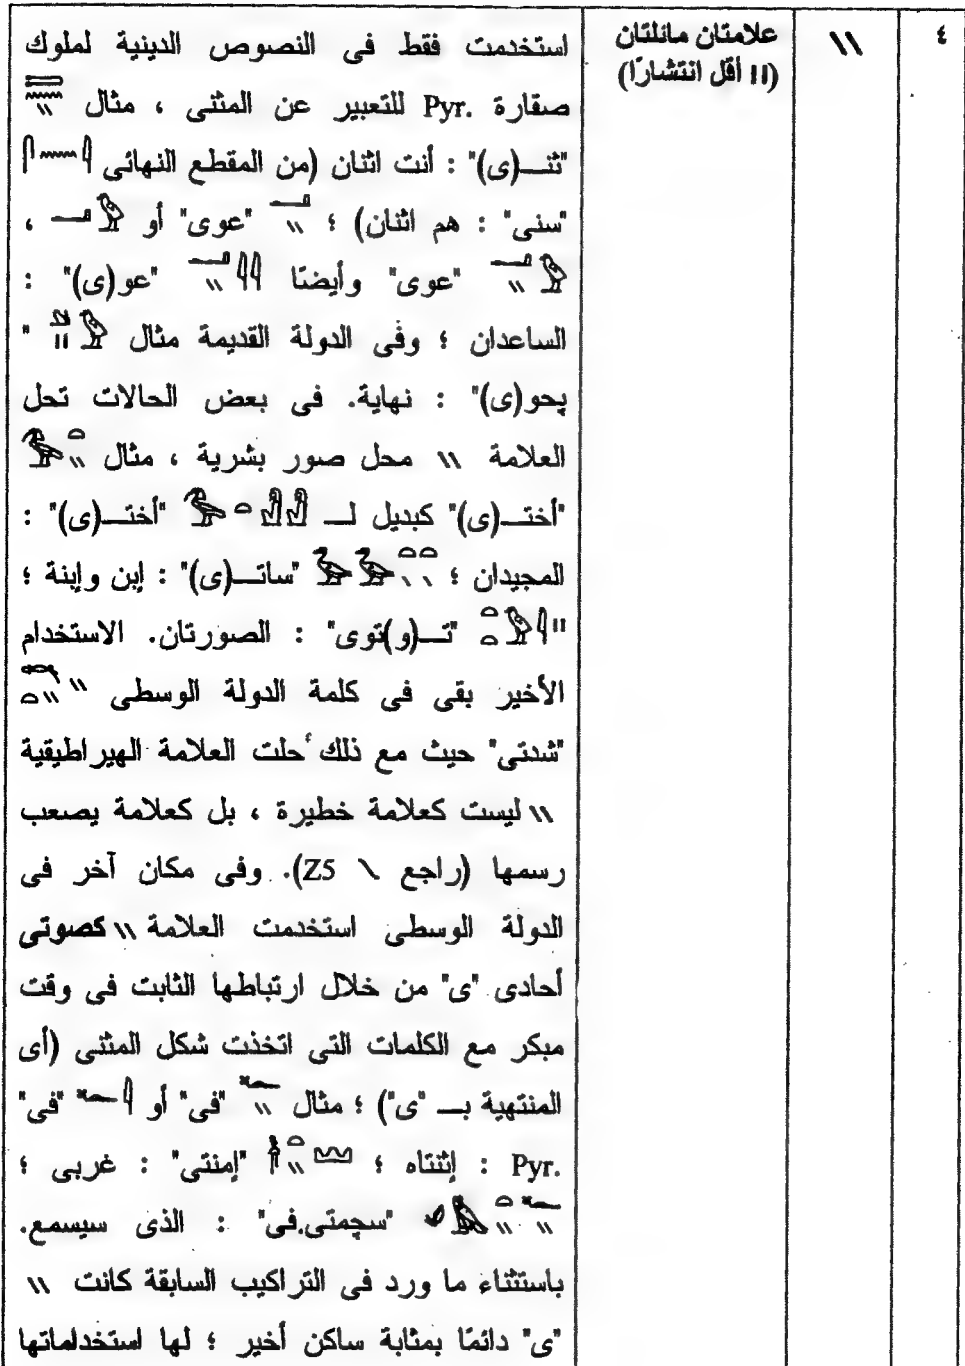 ٤
\\
علامتان مائلتان
(II أقل انتشارًا)
استخدمت فقط فى النصوص الدينية لملوك
صقارة .Pyr للتعبير عن المثنى ، مثال
"ثنـــ(ى)" : أنت اثنان (من المقطع النهائى
"سنى" : هم اثنان) ؛ "عوى" أو ،
"عوى" وأيضًا "عو(ى)" :
الساعدان ؛ وفى الدولة القديمة مثال "
پحو(ى)" : نهاية. فى بعض الحالات تحل
العلامة \\ محل صور بشرية ، مثال
"أختـــ(ى)" كبديل لـــ "أختـــ(ى)" :
المجيدان ؛ "ساتـــ(ى)" : إبن وإبنة ؛
"تـــ(و)توى" : الصورتان. الاستخدام
الأخير بقى فى كلمة الدولة الوسطى
"شدتى" حيث مع ذلك حلت العلامة الهيراطيقية
\\ ليست كعلامة خطيرة ، بل كعلامة يصعب
رسمها (راجع \ Z5). وفى مكان آخر فى
الدولة الوسطى استخدمت العلامة \\ كصوتى
أحادى "ى" من خلال ارتباطها الثابت فى وقت
مبكر مع الكلمات التى اتخذت شكل المثنى (أى
المنتهية بـــ "ى") ؛ مثال "فى" أو "فى"
.Pyr : إثنتاه ؛ "إمنتى" : غربى ؛
"سچمتى.فى" : الذى سيسمع.
باستثناء ما ورد فى التراكيب السابقة كانت \\
"ى" دائمًا بمثابة ساكن أخير ؛ لها استخداماتها